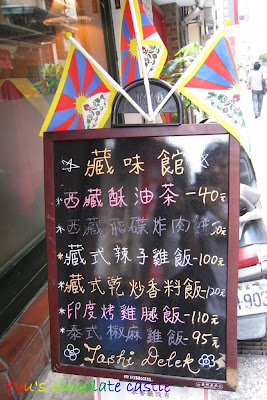 藏味館
西藏酥油茶-40元
西藏飛碟炸肉餅50元
藏式辣子雞飯-100元
藏式乾炒香料飯-120元
印度烤雞腿飯-110元
泰式椒麻雞飯-95元
Tashi Delek
You's chocolate castle